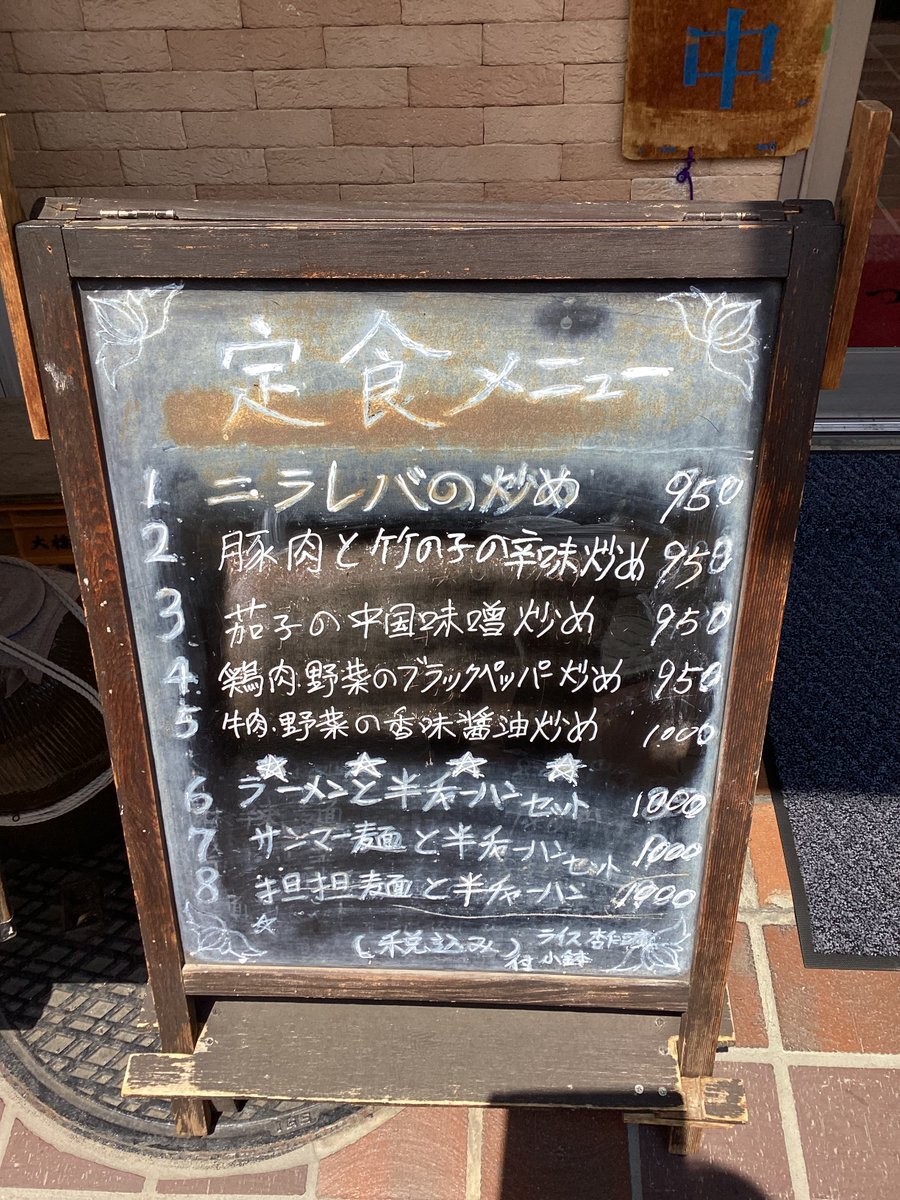 中
定食メニュー
1 ニラレバの炒め 950
2 豚肉と竹の子の辛味炒め 950
3 茄子の中国味噌炒め 950
4 鶏肉・野菜のブラックペッパー炒め 950
5 牛肉・野菜の香味醤油炒め 1.000
6 ラーメンと半チャーハンセット 1000
7 サンマー麺と半チャーハンセット 1000
8 担担麺と半チャーハン
(税込み) ライス
小鉢 付